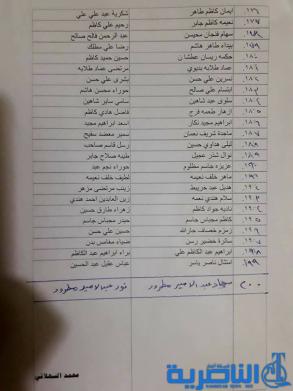 ١٧٦ ايمان كاظم طاهر شكرية عبد علي علي
١٧٧ نعيمه كاظم جابر رحيم علي كاظم
سهام فنجان محيسن عبد الرحمن فالح صالح
١٧٩ بيداء طاهر هاشم رضا علي مطلك
١٨٠ حكمه ريسان عطشان حسين حميد كاظم
١٨١ عماد طلابه بديوي مرتضى عماد طلابه
١٨٢ نسرين علي حسن بشرى علي حسن
١٨٣ ابتسام علي صالح حوراء محسن هاشم
سلوى عبد شاهين سامي ساير شاهين
١٨٥ ازهار طعمه فرج فاضل هادي كاظم
١٨٦ ابراهيم مجيد نكار اسعد ابراهيم مجيد
١٨٧ ماجدة شريف نعمان سمير معضد سفيح
١٨٨ ليلى هداوي حسين رسل قاسم صاحب
١٨٩ نوال شذر عجيل طيبه صلاح جابر
١٩٠ عزيزه جاسم مظلوم حوراء نجم عبد
ماهر خلف نعيمه لطيف خلف نعيمه
هديل عبد خريبط زينب مرتضى مزهر
سلام هندي نعمه زين العابدين احمد هندي
ناديه جواد كاظم زهراء طارق حسين
كاظم مجباس جاسم حيدر مجباس جاسم
زمزم خصاف جارالله حسين علي حسن
سائرة خضير رسن ضياء مغامس بدن
ابراهيم عبد الكاظم علي براء ابراهيم عبد الكاظم
١٩٩ امتثال ناصر ياسر عباس عقيل عبد الحسين
٢٠٠ سجاد عبد الامير مطرود نور عبد الامير مطرود
الناصرية
محمد السهلاني